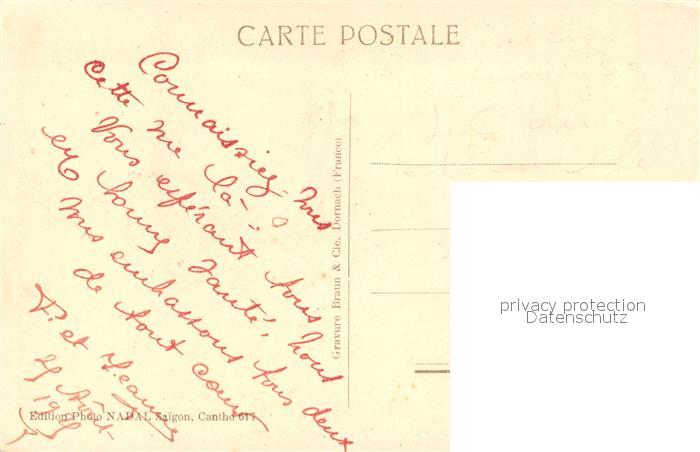 CARTE POSTALE
Connaissiez-vous
cette vue là?
Vous espérant tous
en bonne santé, nous
vous embrassons tous deux
de tout coeur
P. et Jeanne
Août
Edition Photo NADAL Saïgon, Cantho 617
Gravure Braun & Cie, Dornach (France)
privacy protection
Datenschutz